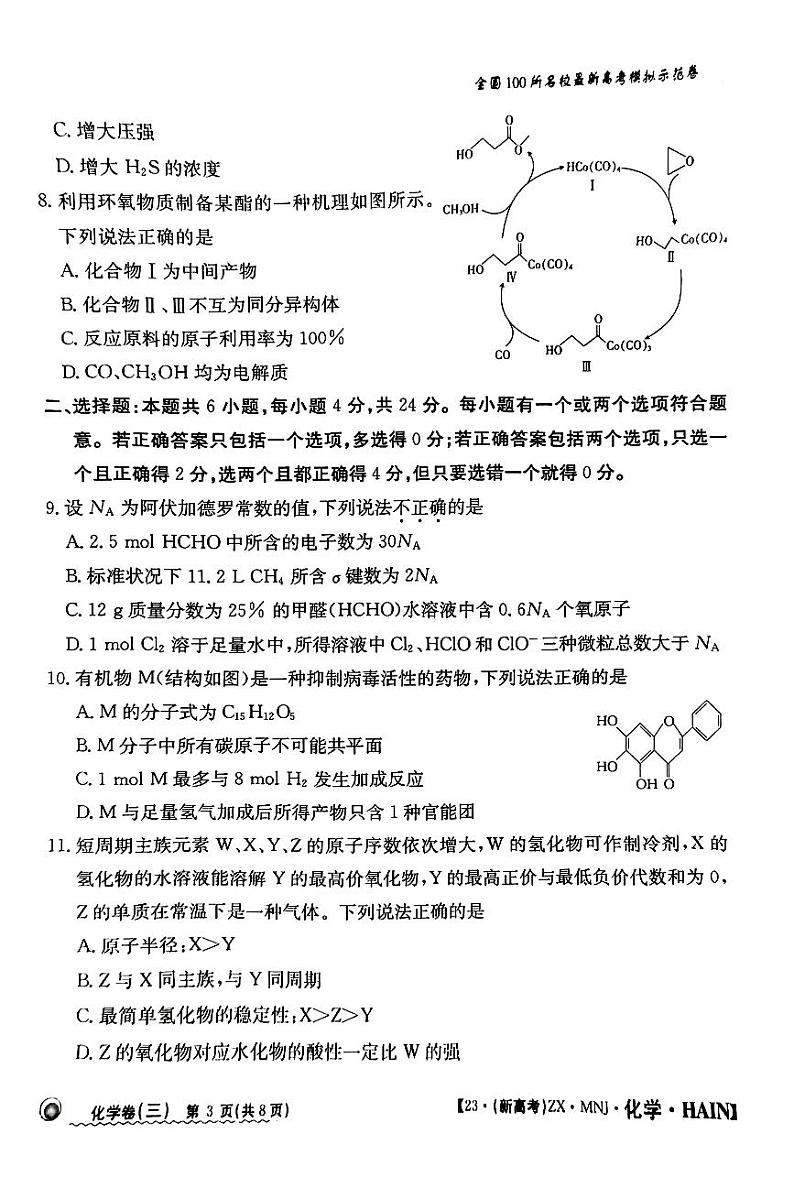 全国100所名校最新高考模拟示范卷
C. 增大压强
D. 增大 H₂S 的浓度
8. 利用环氧物质制备某酯的一种机理如图所示。
下列说法正确的是
A. 化合物Ⅰ为中间产物
B. 化合物Ⅱ、Ⅲ不互为同分异构体
C. 反应原料的原子利用率为 100%
D. CO、CH₃OH 均为电解质
O
HO
O
HCo(CO)₄
Ⅰ
O
CH₃OH
HO
Co(CO)₄
Ⅱ
O
HO
Co(CO)₄
Ⅳ
O
CO
HO
Co(CO)₃
Ⅲ
二、选择题:本题共 6 小题,每小题 4 分,共 24 分。每小题有一个或两个选项符合题
意。若正确答案只包括一个选项,多选得 0 分;若正确答案包括两个选项,只选一
个且正确得 2 分,选两个且都正确得 4 分,但只要选错一个就得 0 分。
9. 设 Nᴀ 为阿伏加德罗常数的值,下列说法不正确的是
A. 2. 5 mol HCHO 中所含的电子数为 30Nᴀ
B. 标准状况下 11. 2 L CH₄ 所含 σ 键数为 2Nᴀ
C. 12 g 质量分数为 25% 的甲醛(HCHO)水溶液中含 0. 6Nᴀ 个氧原子
D. 1 mol Cl₂ 溶于足量水中,所得溶液中 Cl₂、HClO 和 ClO⁻ 三种微粒总数大于 Nᴀ
10. 有机物 M(结构如图)是一种抑制病毒活性的药物,下列说法正确的是
A. M 的分子式为 C₁₅H₁₂O₅
B. M 分子中所有碳原子不可能共平面
C. 1 mol M 最多与 8 mol H₂ 发生加成反应
D. M 与足量氢气加成后所得产物只含 1 种官能团
HO
O
HO
OH O
11. 短周期主族元素 W、X、Y、Z 的原子序数依次增大,W 的氢化物可作制冷剂,X 的
氢化物的水溶液能溶解 Y 的最高价氧化物,Y 的最高正价与最低负价代数和为 0,
Z 的单质在常温下是一种气体。下列说法正确的是
A. 原子半径:X>Y
B. Z 与 X 同主族,与 Y 同周期
C. 最简单氢化物的稳定性:X>Z>Y
D. Z 的氧化物对应水化物的酸性一定比 W 的强
化学卷(三) 第 3 页(共 8 页)
【23·(新高考)ZX·MNJ·化学·HAIN】